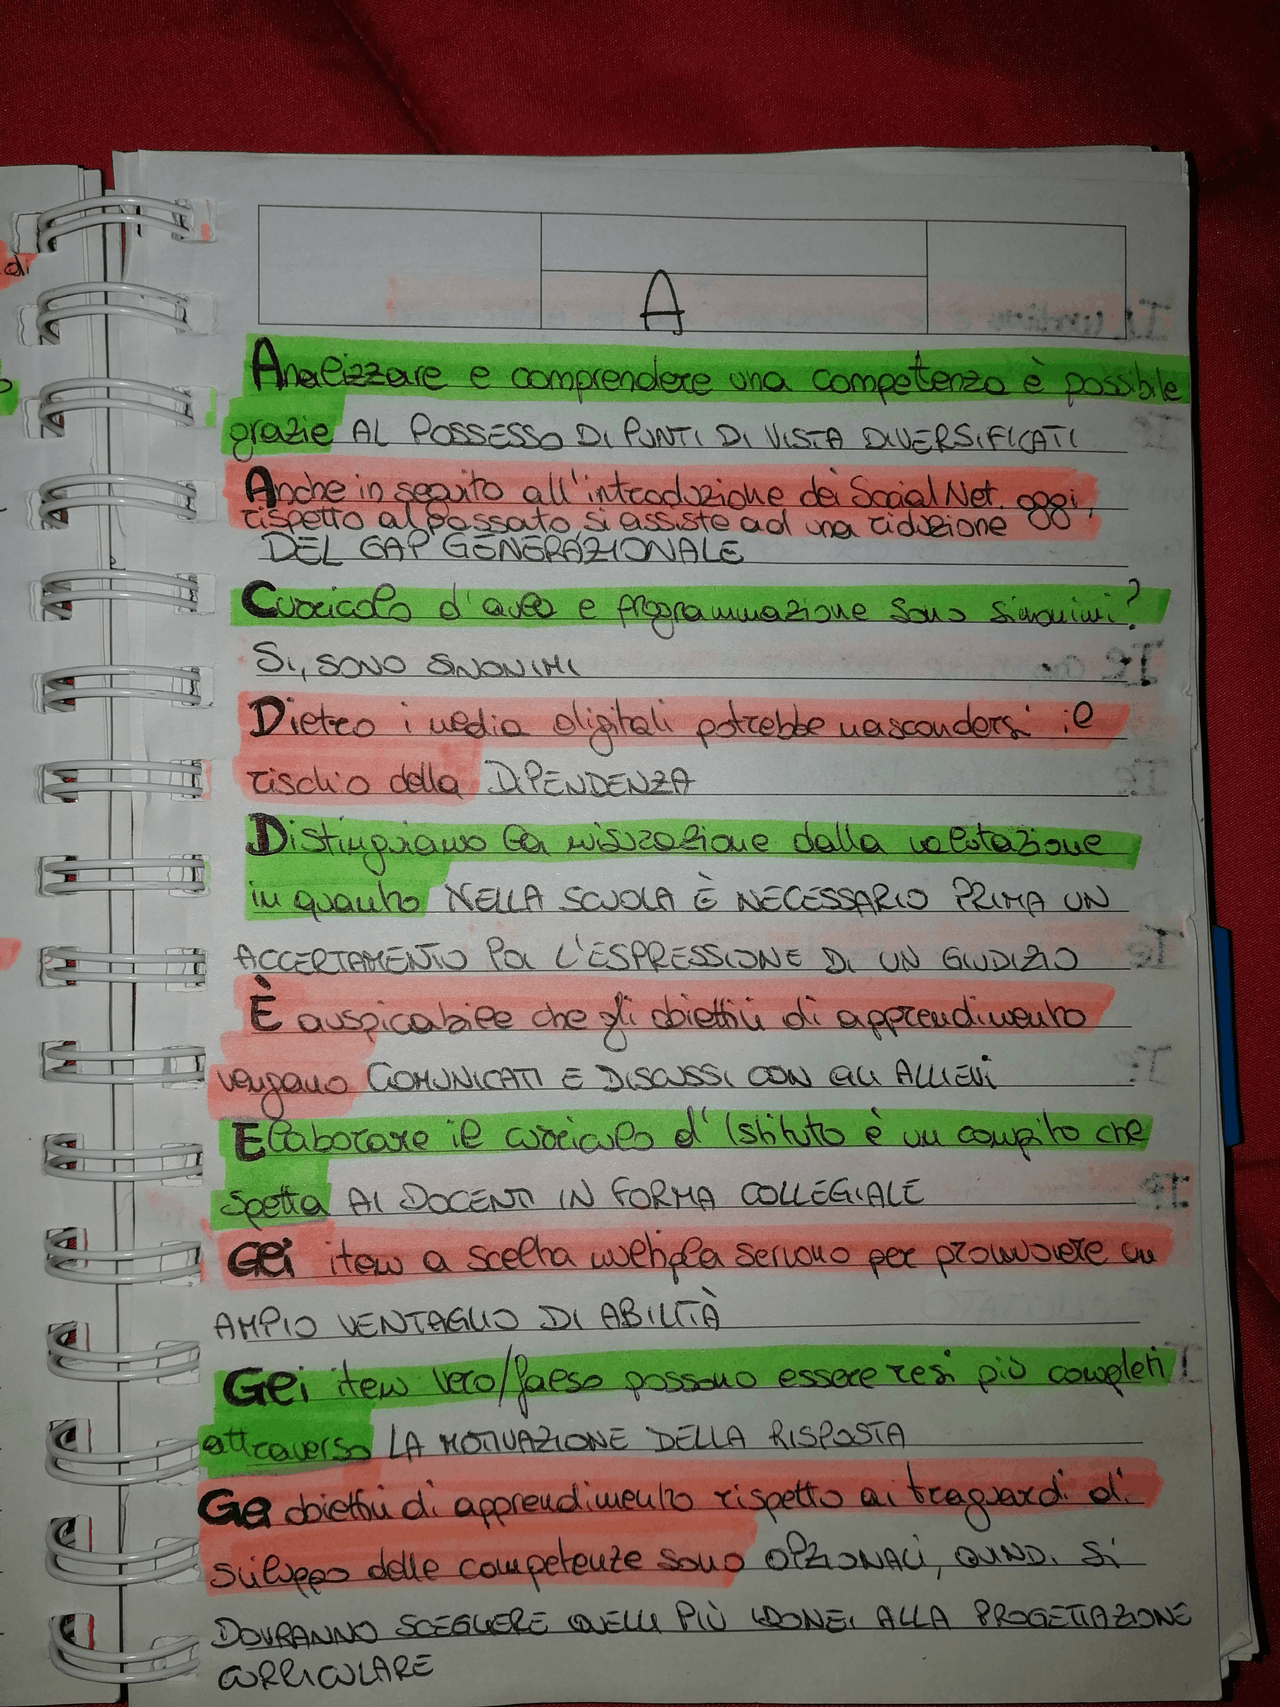 di
A
Analizzare e comprendere una competenza è possibile
grazie AL POSSESSO DI PUNTI DI VISTA DIVERSIFICATI
Anche in seguito all'introduzione dei Social Net. oggi,
rispetto al passato si assiste ad una riduzione
DEL GAP GENERAZIONALE
Curricolo d'aula e programmazione sono sinonimi?
SI, SONO SINONIMI
Dietro i media digitali potrebbe nascondersi il
rischio della DIPENDENZA
Distinguiamo la misurazione dalla valutazione
in quanto NELLA SCUOLA È NECESSARIO PRIMA UN
ACCERTAMENTO POI L'ESPRESSIONE DI UN GIUDIZIO
È auspicabile che gli obiettivi di apprendimento
vengano COMUNICATI E DISCUSSI CON GLI ALLIEVI
Elaborare il curricolo d'Istituto è un compito che
spetta AI DOCENTI IN FORMA COLLEGIALE
Gli item a scelta multipla servono per promuovere un
AMPIO VENTAGLIO DI ABILITÀ
Gli item vero/falso possono essere resi più completi
attraverso LA MOTIVAZIONE DELLA RISPOSTA
Gli obiettivi di apprendimento rispetto ai traguardi di
sviluppo delle competenze sono OPZIONALI, QUINDI SI
DOVRANNO SCEGLIERE QUELLI PIÙ IDONEI ALLA PROGETTAZIONE
CURRICULARE